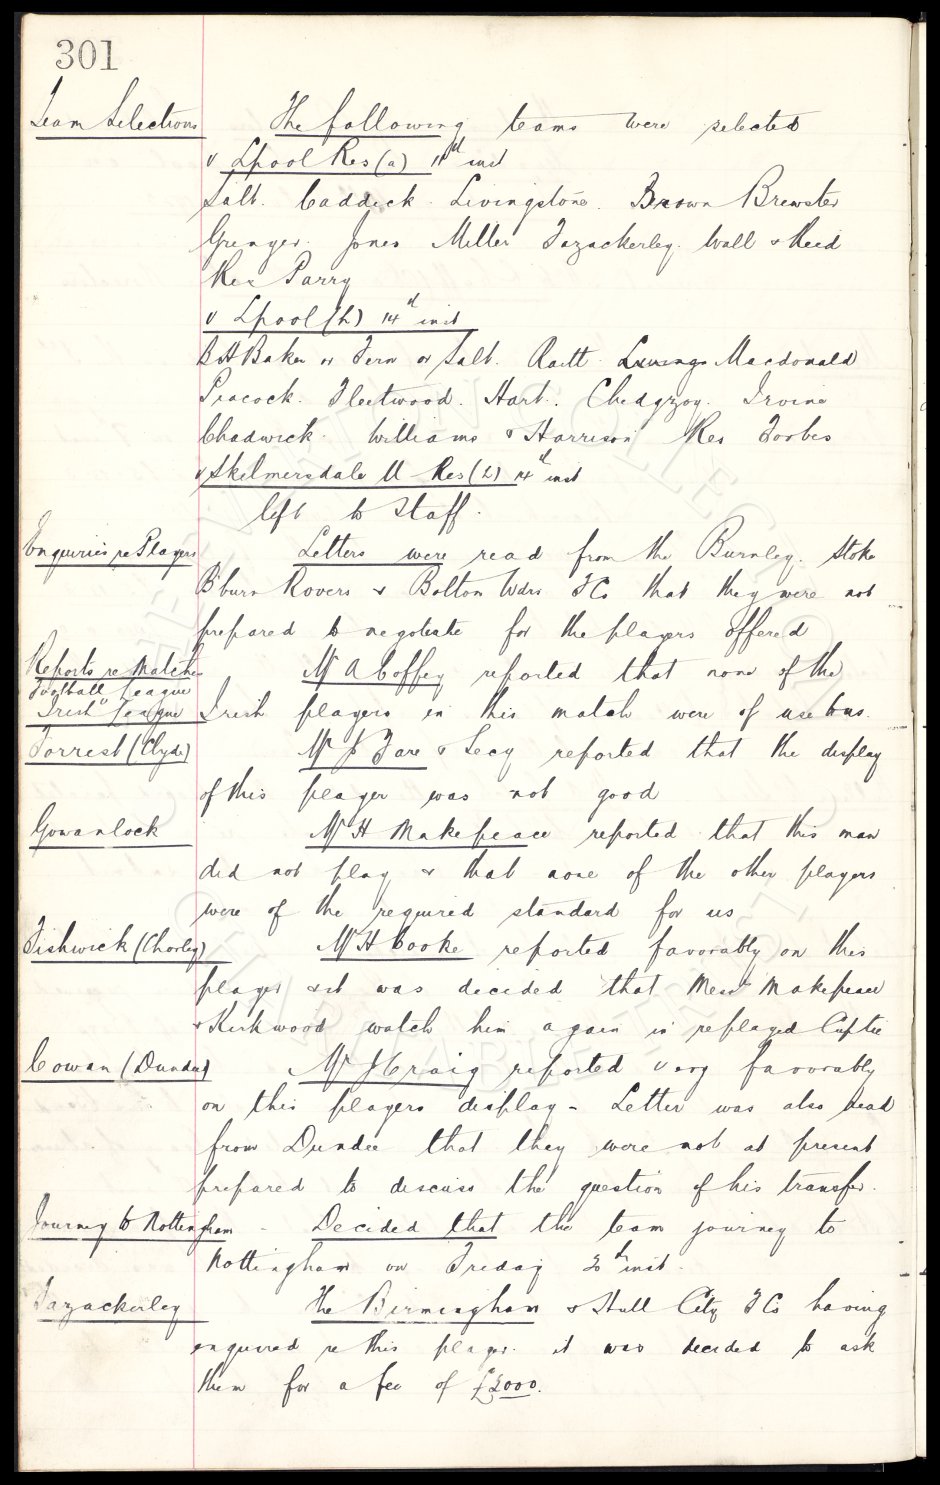 301
Team Selections The following teams were selected
v Lpool Res (a) 11th inst
Salt. Caddick. Livingstone. Brown Brewster
Grenyer. Jones Miller Fazackerley. Wall & Reid
Res Parry
v Lpool (h) 14th inst
B H Baker or Fern or Salt. Raitt. Livings Macdonald
Peacock. Fleetwood. Hart. Chedgzoy. Irvine
Chadwick. Williams & Harrison Res Forbes
v Skelmersdale U Res (h) 14th inst
left to Staff.
Enquiries re Players Letters were read from the Burnley. Stoke
B'burn Rovers & Bolton Wdrs FCs that they were not
prepared to negotiate for the players offered
Reports re Matches Mr A Coffey reported that none of the
Football League
Irish League Irish players in this match were of use to us.
Forrest (Clyde) Mr J Fare & Secy reported that the display
of this player was not good
Gowanlock Mr H Makepeace reported that this man
did not play & that none of the other players
were of the required standard for us
Fishwick (Chorley) Mr H Cooke reported favorably on this
player & it was decided that Messrs Makepeace
& Kirkwood watch him again in replayed Cuptie
Cowan (Dundee) Mr J Craig reported very favorably
on this players display - Letter was also read
from Dundee that they were not at present
prepared to discuss the question of his transfer.
Journey to Nottingham - Decided that the team journey to
Nottingham on Friday 20th inst.
Fazackerley The Birmingham & Hull City FCs having
enquired re this player. it was decided to ask
them for a fee of £2000.